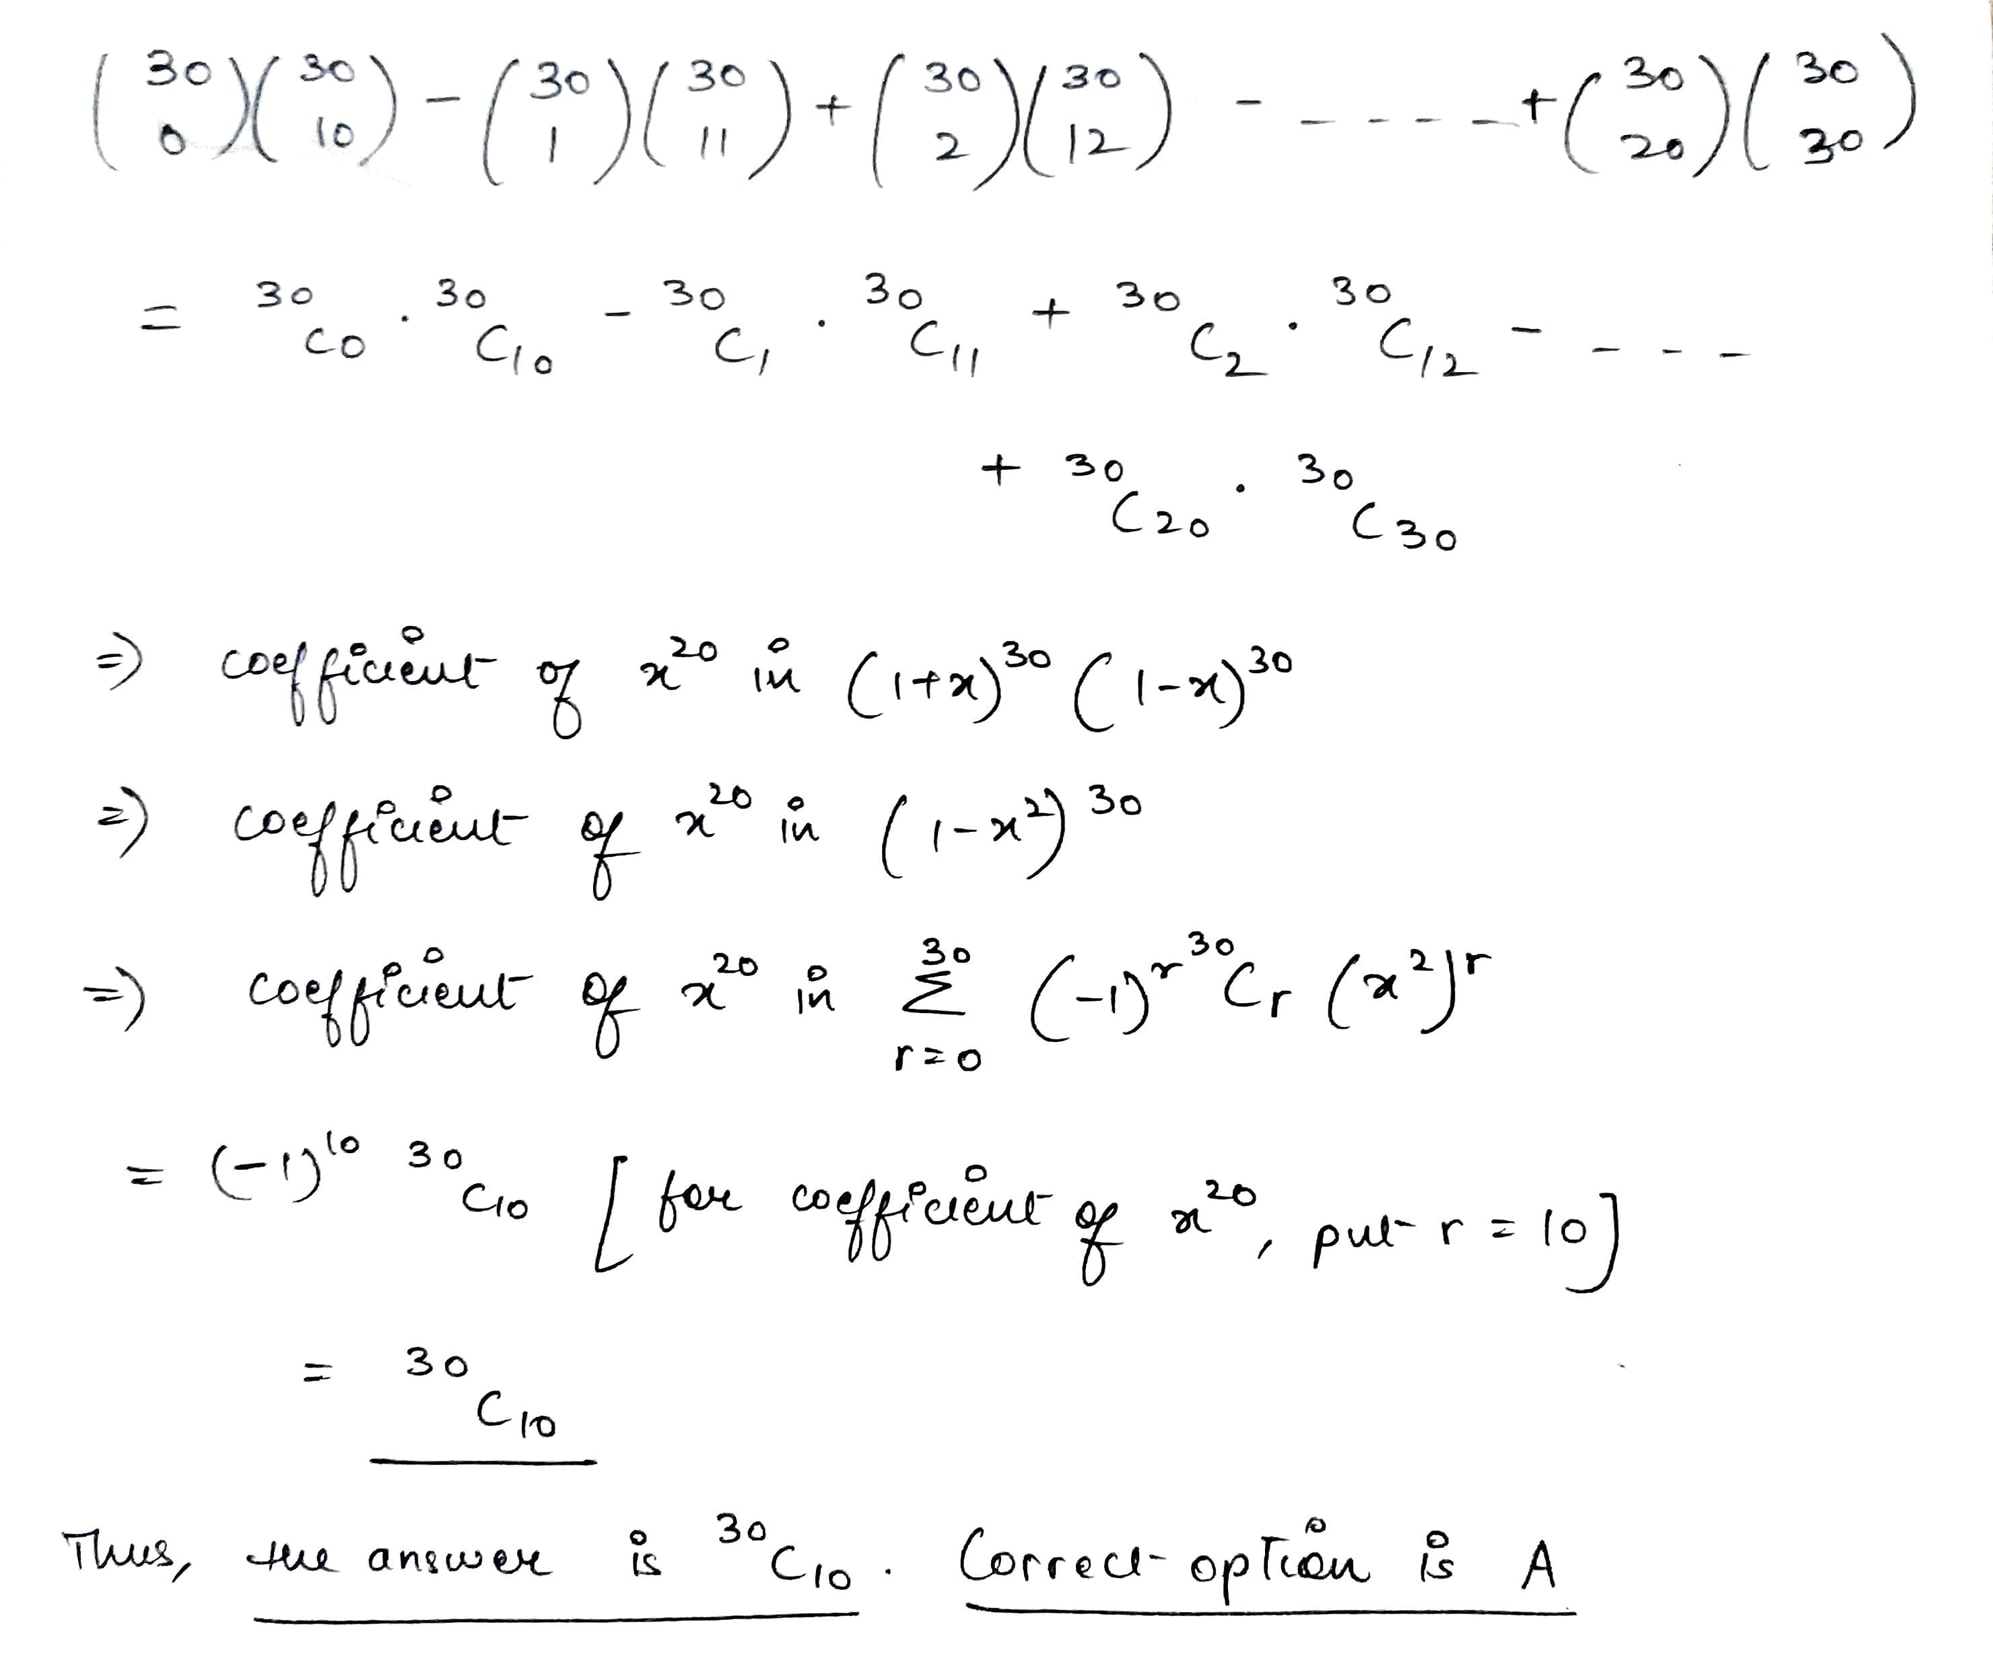 (30 0)(30 10) - (30 1)(30 11) + (30 2)(30 12) - ----- + (30 20)(30 30)
= ³⁰C₀ . ³⁰C₁₀ - ³⁰C₁ . ³⁰C₁₁ + ³⁰C₂ . ³⁰C₁₂ - - - -
+ ³⁰C₂₀ . ³⁰C₃₀
⇒ coefficient of x²⁰ in (1+x)³⁰ (1-x)³⁰
⇒ coefficient of x²⁰ in (1-x²)³⁰
⇒ coefficient of x²⁰ in 30 Σ r=0 (-1)^r ³⁰Cr (x²)^r
= (-1)¹⁰ ³⁰C₁₀ [for coefficient of x²⁰, put r = 10]
= ³⁰C₁₀
Thus, the answer is ³⁰C₁₀. Correct option is A